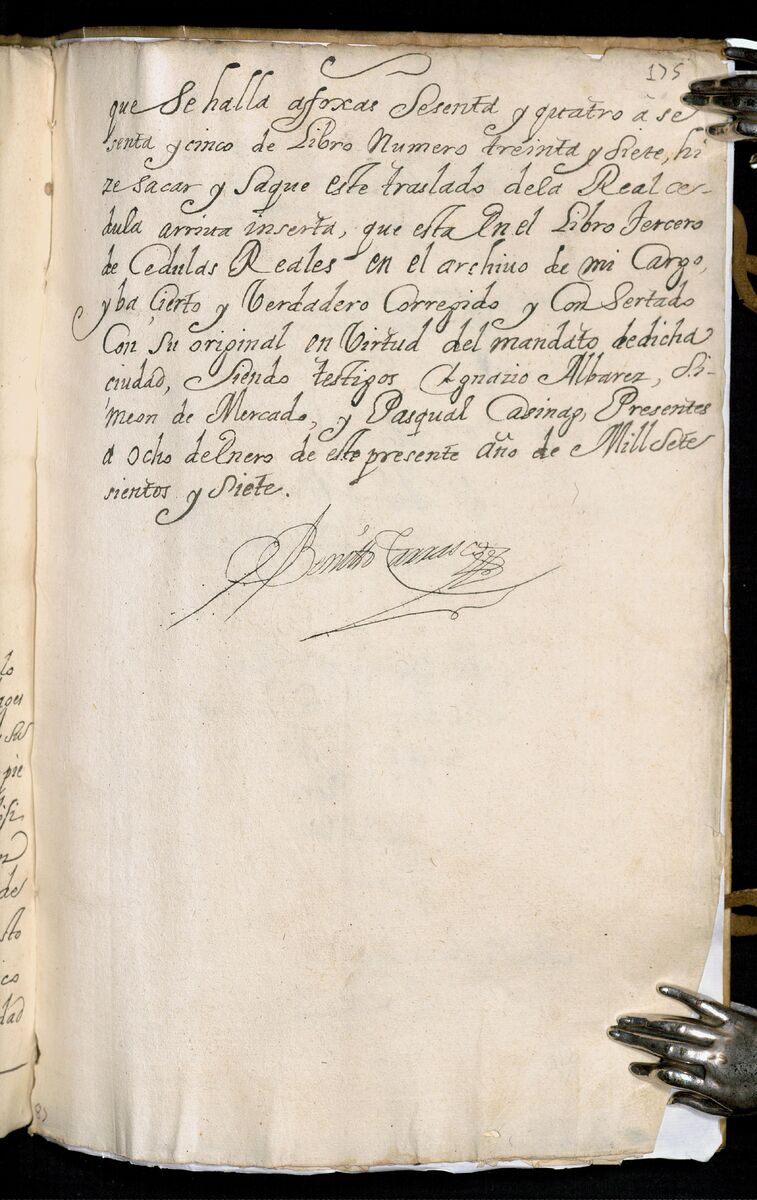 175
que Se halla afoxas Sesenta y quatro a se
senta y cinco de Libro Numero treinta y Siete, hi
ze sacar y Saque este traslado dela Real ce-
dula arriva inserta, que esta En el Libro tercero
de Cedulas Reales en el archivo de mi Cargo,
y ba Cierto y Verdadero Corregido y Con Sertado
Con su original en Virtud del mandato de dicha
ciudad, Siendo testigos Ygnazio Albarez, Si-
meon de Mercado, y Pasqual Casinag, Presentes
a ocho de Enero de este presente año de Mill Sete
sientos y Siete.
Benitto Carrasco